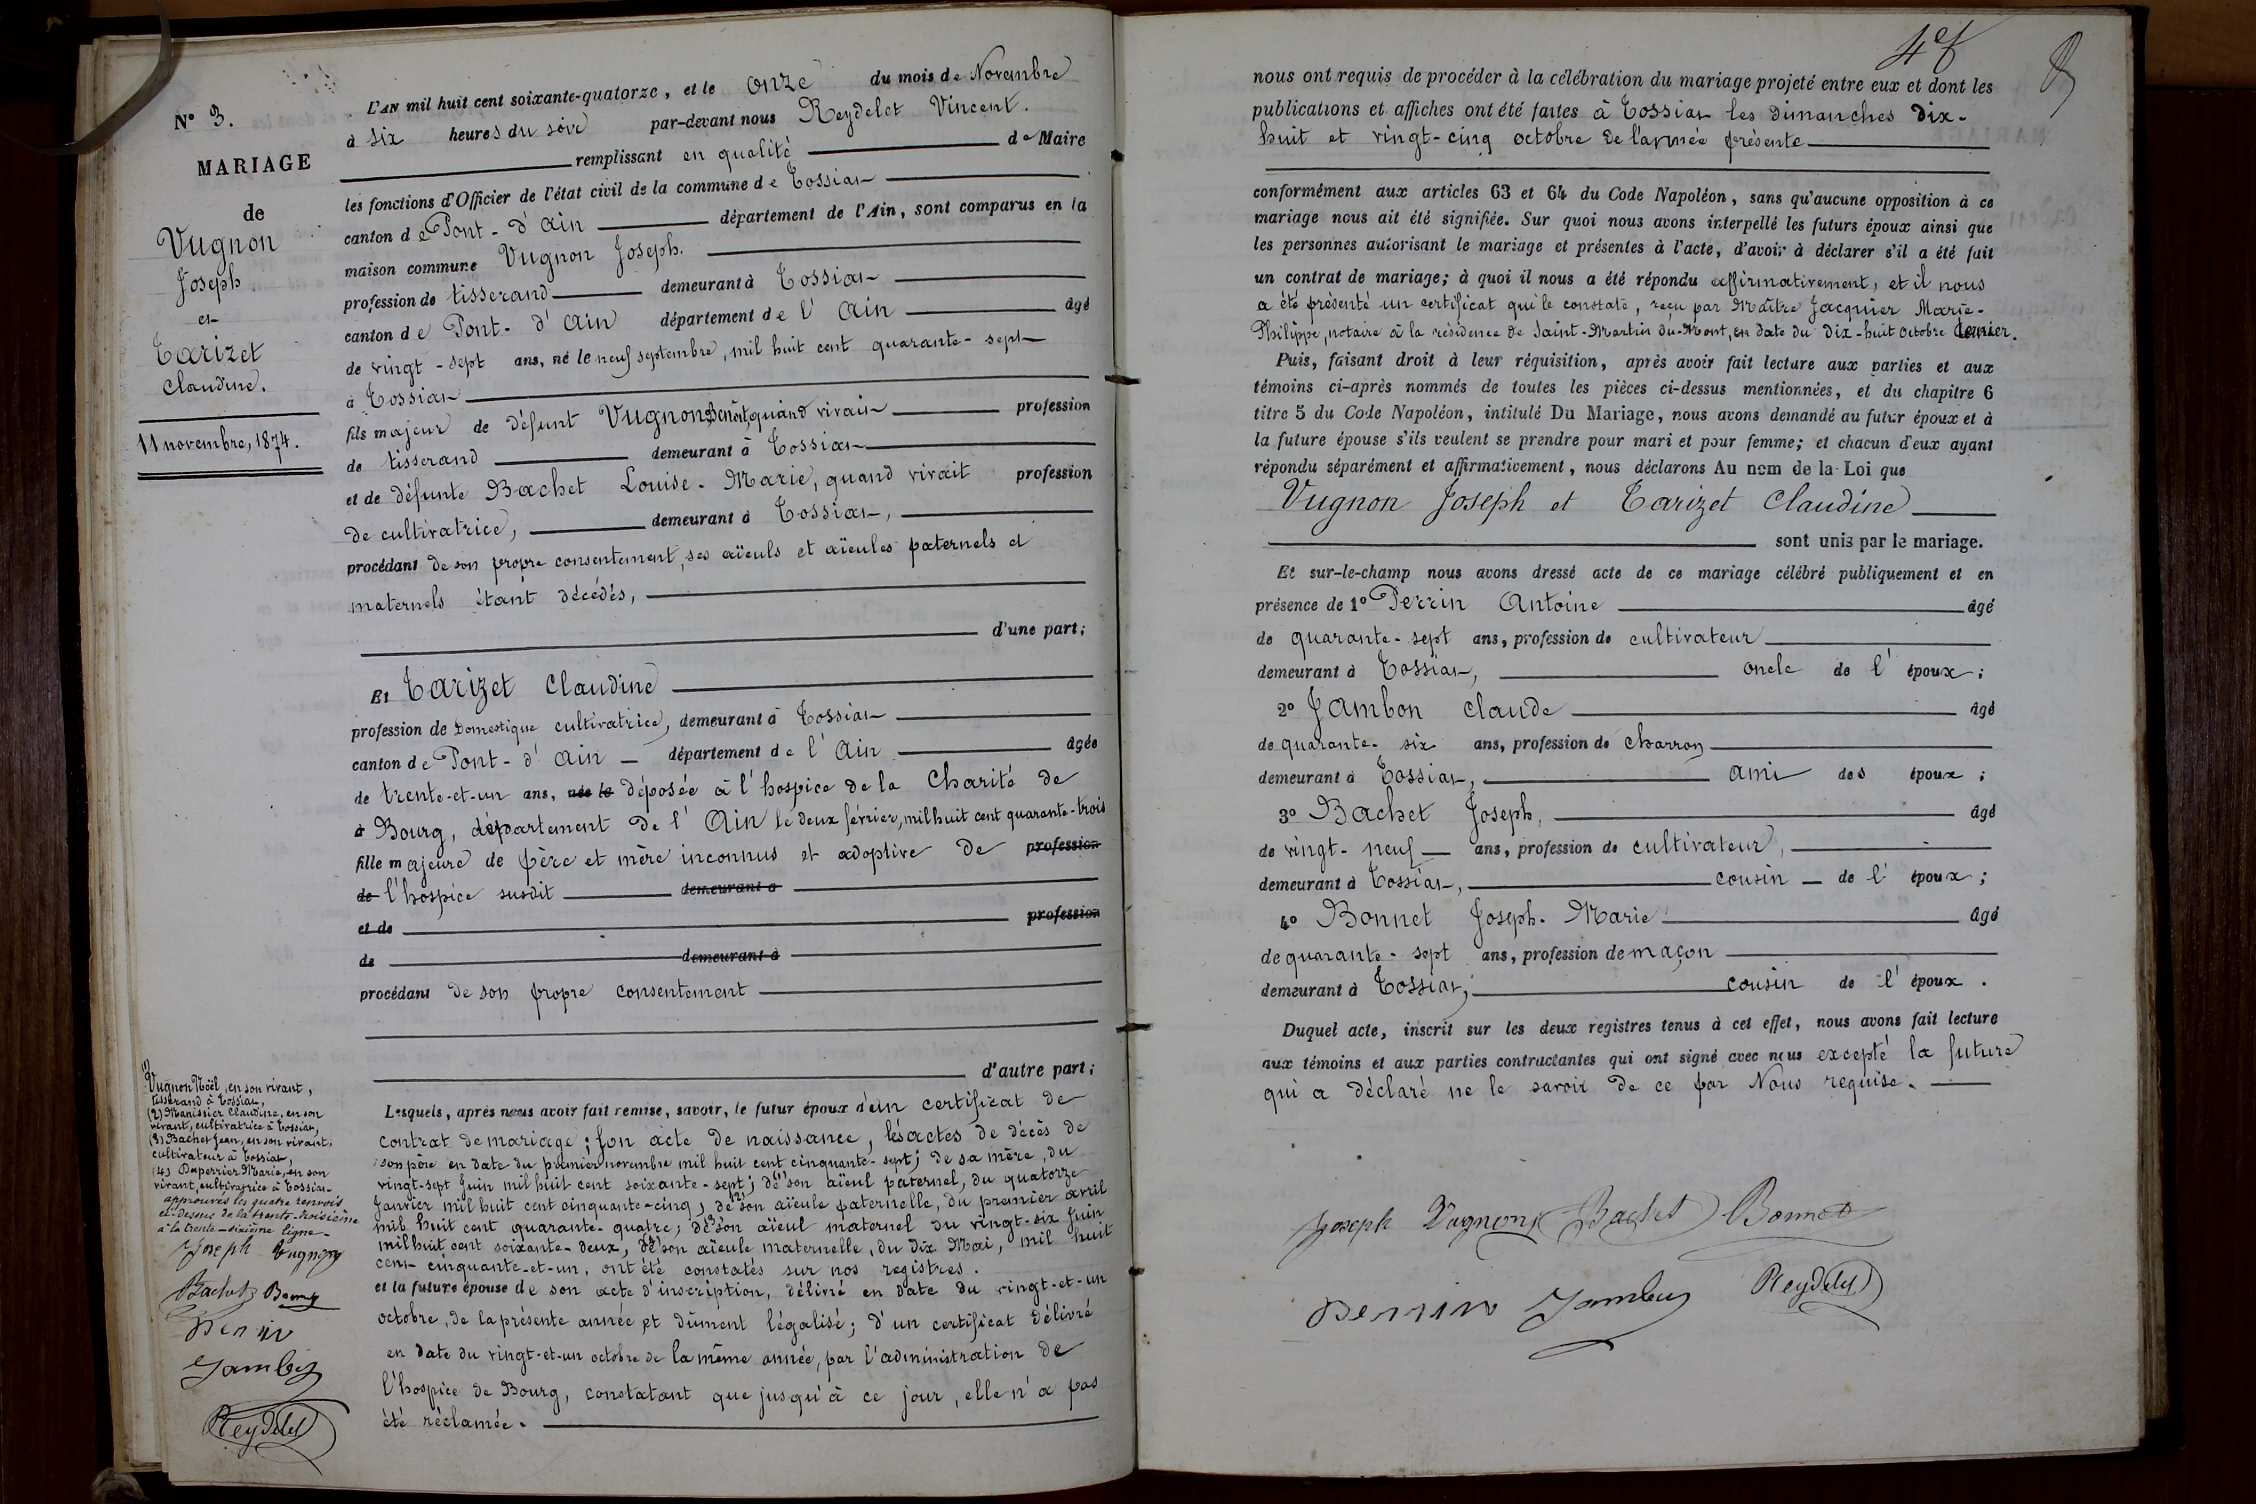 N° 3.
MARIAGE
de
Vugnon
Joseph
et
Tarizet
Claudine.
11 novembre, 1874.
L'AN mil huit cent soixante-quatorze, et le onze du mois de Novembre
à six heures du soir par-devant nous Reydelet Vincent.
remplissant en qualité de Maire
les fonctions d'Officier de l'état civil de la commune de Tossiat
canton de Pont-d'Ain département de l'Ain, sont comparus en la
maison commune Vugnon Joseph.
profession de tisserand demeurant à Tossiat
canton de Pont-d'Ain département de l'Ain âgé
de vingt-sept ans, né le neuf septembre, mil huit cent quarante-sept
à Tossiat
fils majeur de défunt Vugnon Benoît, quand vivait profession
de tisserand demeurant à Tossiat
et de défunte Bachet Louise-Marie, quand vivait profession
de cultivatrice, demeurant à Tossiat,
procédant de son propre consentement, ses aïeuls et aïeules paternels et
maternels étant décédés,
d'une part;
Et Tarizet Claudine
profession de domestique cultivatrice, demeurant à Tossiat
canton de Pont-d'Ain département de l'Ain âgée
de trente-et-un ans, née le déposée à l'hospice de la Charité de
à Bourg, département de l'Ain le deux février, mil huit cent quarante-trois
fille majeure de père et mère inconnus et adoptive de profession
de l'hospice susdit demeurant à
et de profession
de demeurant à
procédant de son propre consentement
d'autre part;
Lesquels, après nous avoir fait remise, savoir, le futur époux d'un certificat de
contrat de mariage; son acte de naissance, les actes de décès de
son père en date du premier novembre mil huit cent cinquante-sept; de sa mère, du
vingt-sept juin mil huit cent soixante-sept; de (1) son aïeul paternel, du quatorze
Janvier mil huit cent cinquante-cinq, de (2) son aïeule paternelle, du premier avril
mil huit cent quarante-quatre; de (3) son aïeul maternel du vingt-six juin
mil huit cent soixante-deux, de (4) son aïeule maternelle, du dix Mai, mil huit
cent cinquante-et-un, ont été constatés sur nos registres.
et la future épouse de son acte d'inscription, délivré en date du vingt-et-un
octobre, de la présente année et dûment légalisé; d'un certificat délivré
en date du vingt-et-un octobre de la même année, par l'administration de
l'hospice de Bourg, constatant que jusqu'à ce jour, elle n'a pas
été réclamée.
(1)
Vugnon Noël, en son vivant,
tisserand à Tossiat,
(2) Manissier Claudine, en son
vivant, cultivatrice à Tossiat,
(3) Bachet Jean, en son vivant,
cultivateur à Tossiat,
(4) Duperrier Marie, en son
vivant, cultivatrice à Tossiat
approuvés les quatre renvois
ci-dessus de la trente-troisième
à la trente-sixième ligne
Joseph Vugnon
Bachet Bonnet
Perrin
Jambon
Reydelet
4e f
nous ont requis de procéder à la célébration du mariage projeté entre eux et dont les
publications et affiches ont été faites à Tossiat les dimanches dix-
huit et vingt-cinq octobre de l'année présente
conformément aux articles 63 et 64 du Code Napoléon, sans qu'aucune opposition à ce
mariage nous ait été signifiée. Sur quoi nous avons interpellé les futurs époux ainsi que
les personnes autorisant le mariage et présentes à l'acte, d'avoir à déclarer s'il a été fait
un contrat de mariage; à quoi il nous a été répondu affirmativement, et il nous
a été présenté un certificat qui le constate, reçu par Maître Jacquier Marie-
Philippe, notaire à la résidence de Saint-Martin-du-Mont, en date du dix-huit octobre dernier.
Puis, faisant droit à leur réquisition, après avoir fait lecture aux parties et aux
témoins ci-après nommés de toutes les pièces ci-dessus mentionnées, et du chapitre 6
titre 5 du Code Napoléon, intitulé Du Mariage, nous avons demandé au futur époux et à
la future épouse s'ils veulent se prendre pour mari et pour femme; et chacun d'eux ayant
répondu séparément et affirmativement, nous déclarons Au nom de la Loi que
Vugnon Joseph et Tarizet Claudine
sont unis par le mariage.
Et sur-le-champ nous avons dressé acte de ce mariage célébré publiquement et en
présence de 1° Perrin Antoine âgé
de quarante-sept ans, profession de cultivateur
demeurant à Tossiat, oncle de l'époux;
2° Jambon Claude âgé
de quarante-six ans, profession de charron
demeurant à Tossiat, ami des époux;
3° Bachet Joseph, âgé
de vingt-neuf ans, profession de cultivateur,
demeurant à Tossiat, cousin de l'époux;
4° Bonnet Joseph-Marie âgé
de quarante-sept ans, profession de maçon
demeurant à Tossiat, cousin de l'époux.
Duquel acte, inscrit sur les deux registres tenus à cet effet, nous avons fait lecture
aux témoins et aux parties contractantes qui ont signé avec nous excepté la future
qui a déclaré ne le savoir de ce par Nous requise.
Joseph Vugnon Bachet Bonnet
Perrin Jambon Reydelet